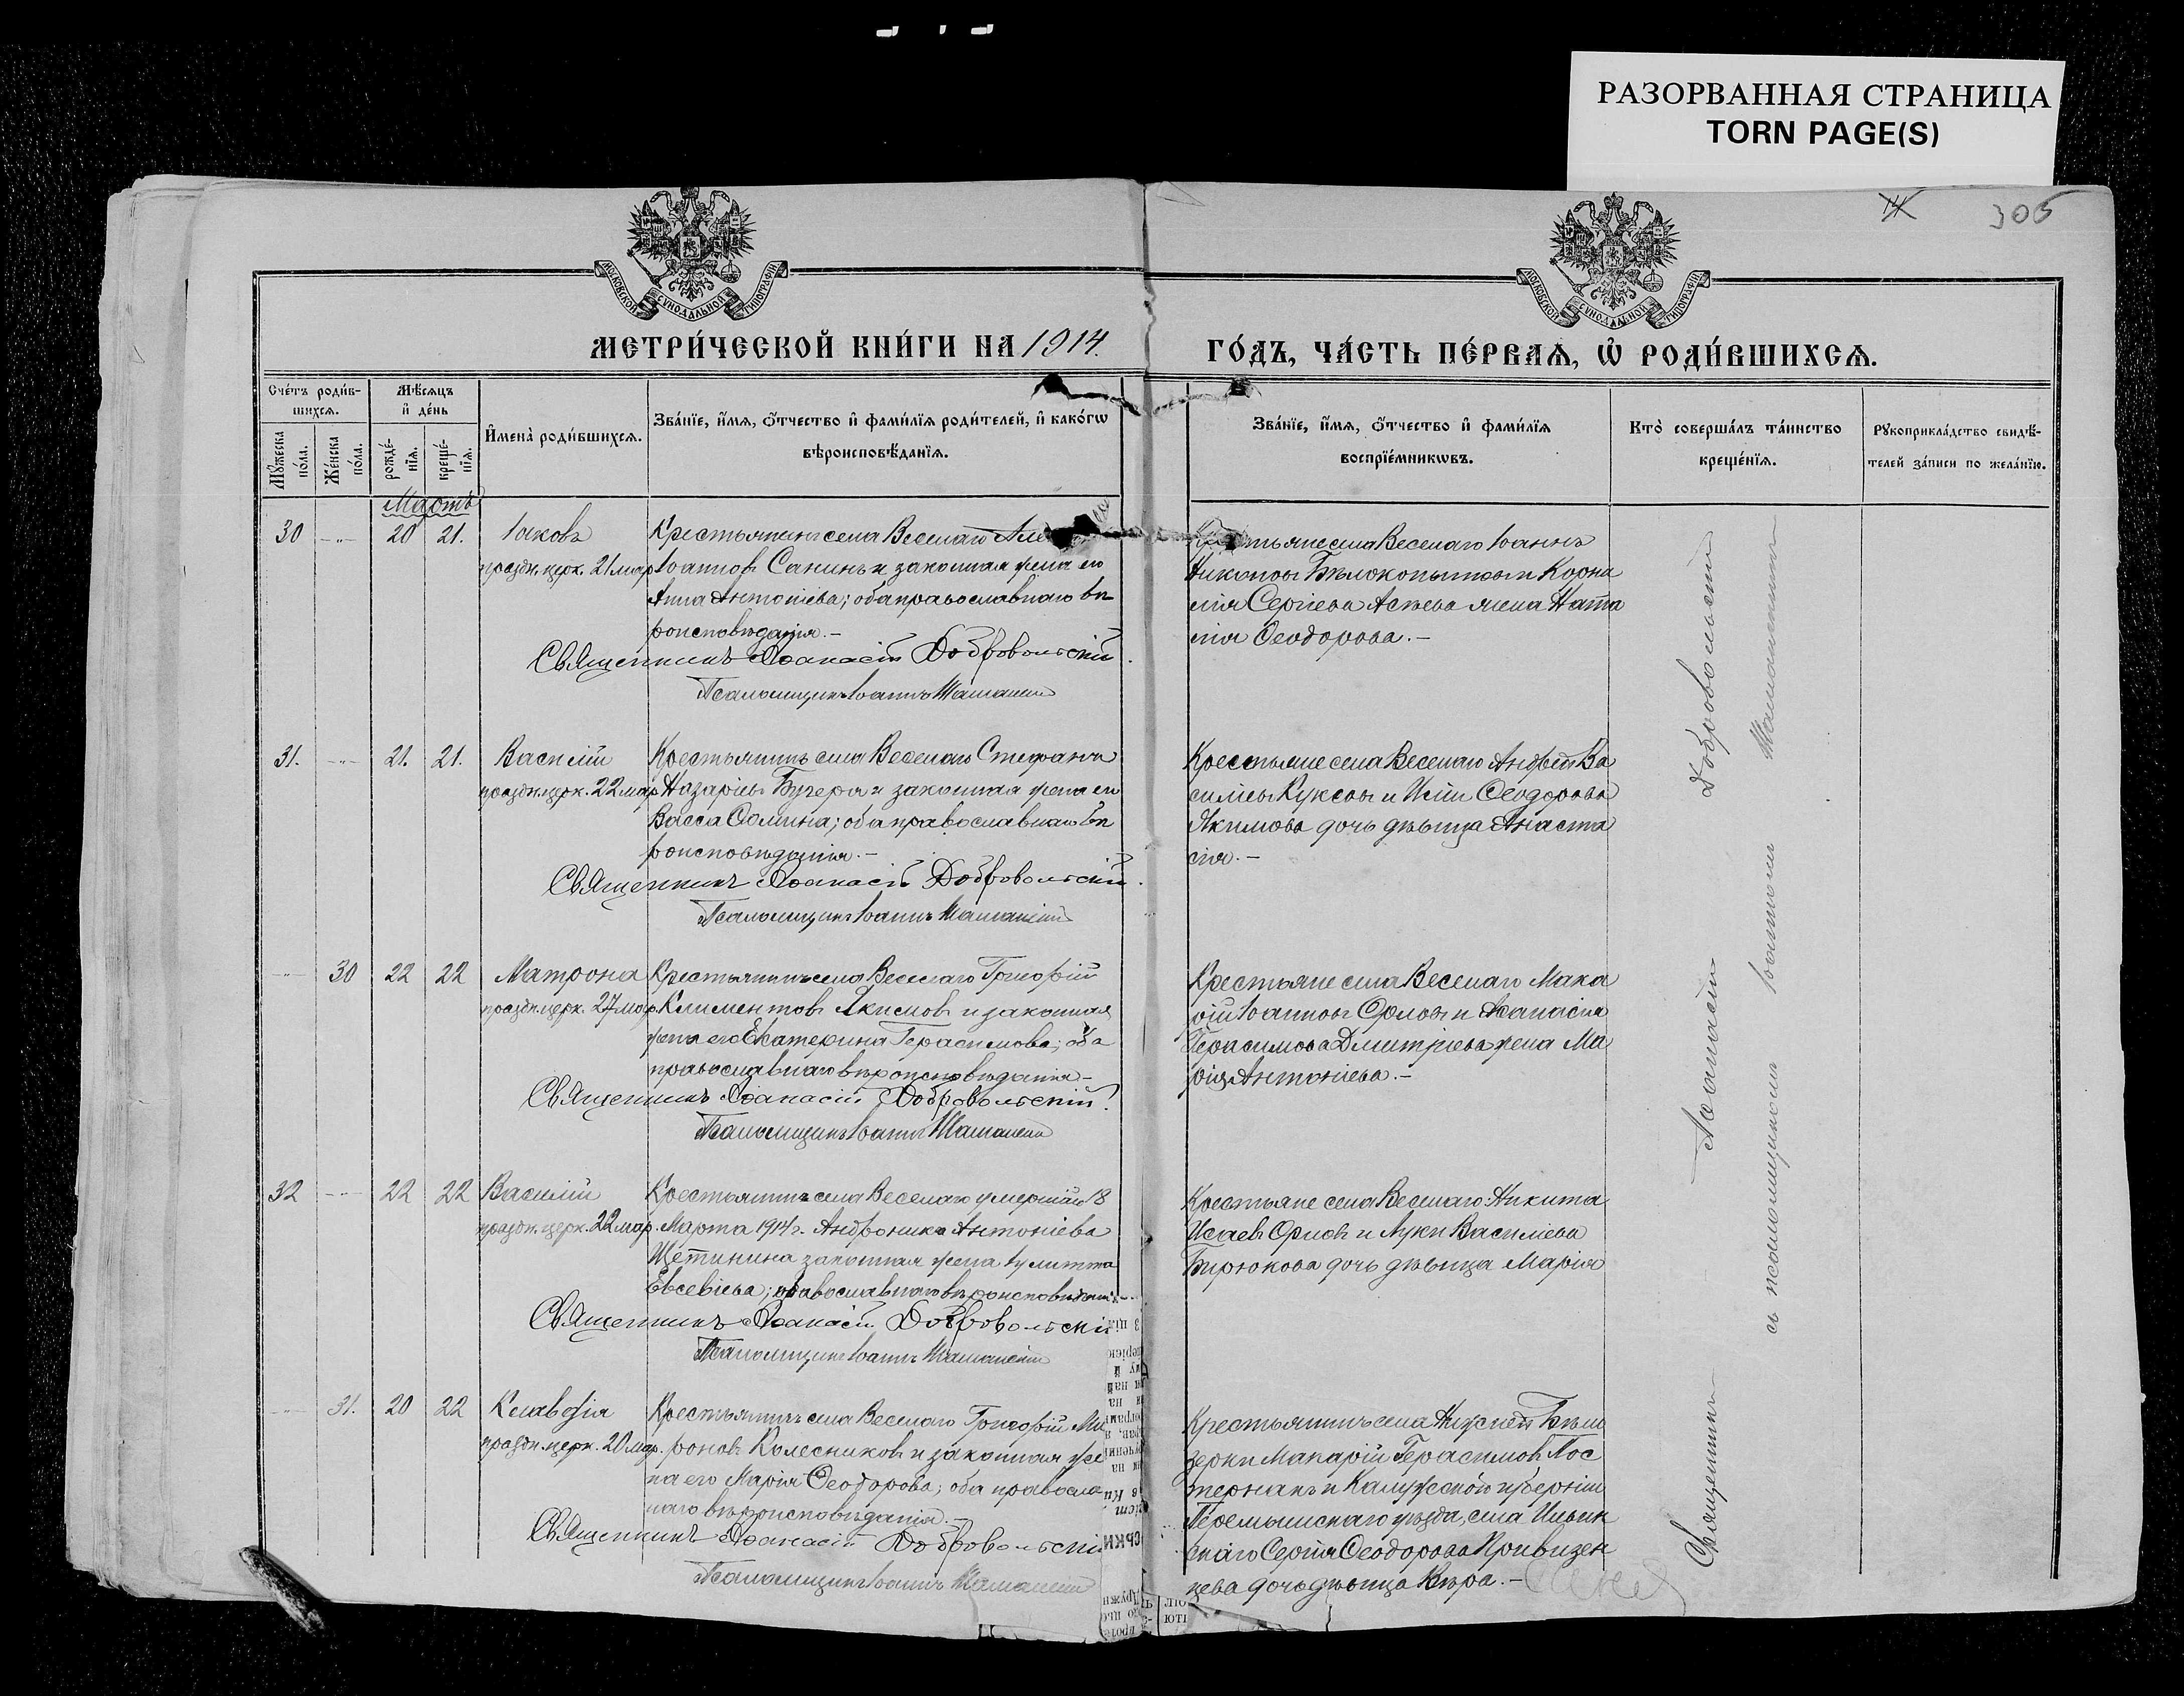 РАЗОРВАННАЯ СТРАНИЦА
TORN PAGE(S)
305
МОСКОВСКОЙ СѴНОДАЛЬНОЙ ТИПОГРАФІИ
МОСКОВСКОЙ СѴНОДАЛЬНОЙ ТИПОГРАФІИ
МЕТРИ́ЧЕСКОЙ КНИ́ГИ НА 1914.
ГО́ДЪ, ЧА́СТЬ ПЕ́РВАЯ, Ѡ҆ РОДИ́ВШИХСЯ.
Сче́тъ роди́в-
шихся.
Мѣ́сяцъ
и҆ де́нь
Мꙋ́жеска по́ла.
Же́нска по́ла.
рожде́-
нїя.
креще́-
нїя.
И҆мена̀ роди́вшихся.
Зва́нїе, и҆́мя, ѻ҆́тчество и҆ фами́лїя роди́телей, и҆ како́гѡ
вѣроисповѣ́данїя.
Зва́нїе, и҆́мя, ѻ҆́тчество и҆ фами́лїя
воспрїе́мникѡвъ.
Кто̀ соверша́лъ та́инство
креще́нїя.
Рꙋкоприкла́дство свидѣ́-
телей за́писи по жела́нїю.
Мартъ
30 —"— 20 21. Іаковъ
праздн. церк. 21 мар.
Крестьянинъ села Веселаго Але
Іоанновъ Санинъ и законная жена его
Анна Антоніева; оба православнаго вѣ
роисповѣданія.—
Священникъ Аѳанасій Добровольскій.
Псаломщикъ Іоаннъ
Крестьяне села Веселаго Іоаннъ
Никоновъ Бѣлокопытовъ и Корни
лія Сергіева Асѣева жена Ната
лія Ѳеодорова.—
31. —"— 21. 21. Василій
праздн. церк. 22 мар.
Крестьянинъ села Веселаго Стефанъ
Назаріевъ Бугера и законная жена его
Васса Ѳомина; оба православнаго вѣ
роисповѣданія.—
Священникъ Аѳанасій Добровольскій.
Псаломщикъ Іоаннъ
Крестьяне села Веселаго Андрей Ва
силіевъ Куксовъ и Иліи Ѳеодорова
Якимова дочь дѣвица Анаста
сія.—
—"— 30 22 22 Матрона
праздн. церк. 27 мар.
Крестьянинъ села Веселаго Григорій
Климентовъ Якимовъ и законная
жена его Екатерина Герасимова; оба
православнаго вѣроисповѣданія—
Священникъ Аѳанасій Добровольскій.
Псаломщикъ Іоаннъ
Крестьяне села Веселаго Мака
рій Іоанновъ Орловъ и Аѳанасія
Герасимова Дмитріева жена Ма
рія Антоніева.—
32 —"— 22 22 Василій
праздн. церк. 22 мар.
Крестьянинъ села Веселаго умершаго 18
Марта 1914 г. Андроника Антоніева
Щетинина законная жена Іулитта
Евсевіева; православнаго вѣроисповѣданія.—
Священникъ Аѳанасій Добровольскій
Псаломщикъ Іоаннъ
Крестьяне села Веселаго Никита
Исаевъ Орловъ и Луки Василіева
Бирюкова дочь дѣвица Марія
—"— 31. 20 22 Клавдія
праздн. церк. 20 мар.
Крестьянинъ села Веселаго Григорій Ми
роновъ Колесниковъ и законная же
на его Марія Ѳеодорова; оба правосла
наго вѣроисповѣданія.—
Священникъ Аѳанасій Добровольскій
Псаломщикъ Іоаннъ
Крестьянинъ села Нижней
Макарій Герасимовъ
и Калужской губерніи
Перемышльскаго уѣзда, села Ильин
скаго Сергія Ѳеодорова
цева дочь дѣвица Вѣра.—
Священникъ Аѳанасій Добровольскій
съ псаломщикомъ Іоанномъ